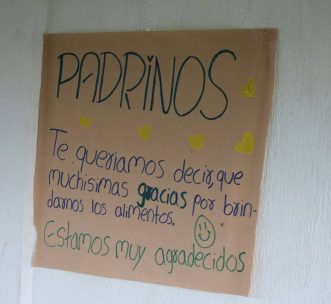 PADRINOS
Te queriamos decir, que
muchisimas gracias por brin-
darnos los alimentos.
Estamos muy agradecidos